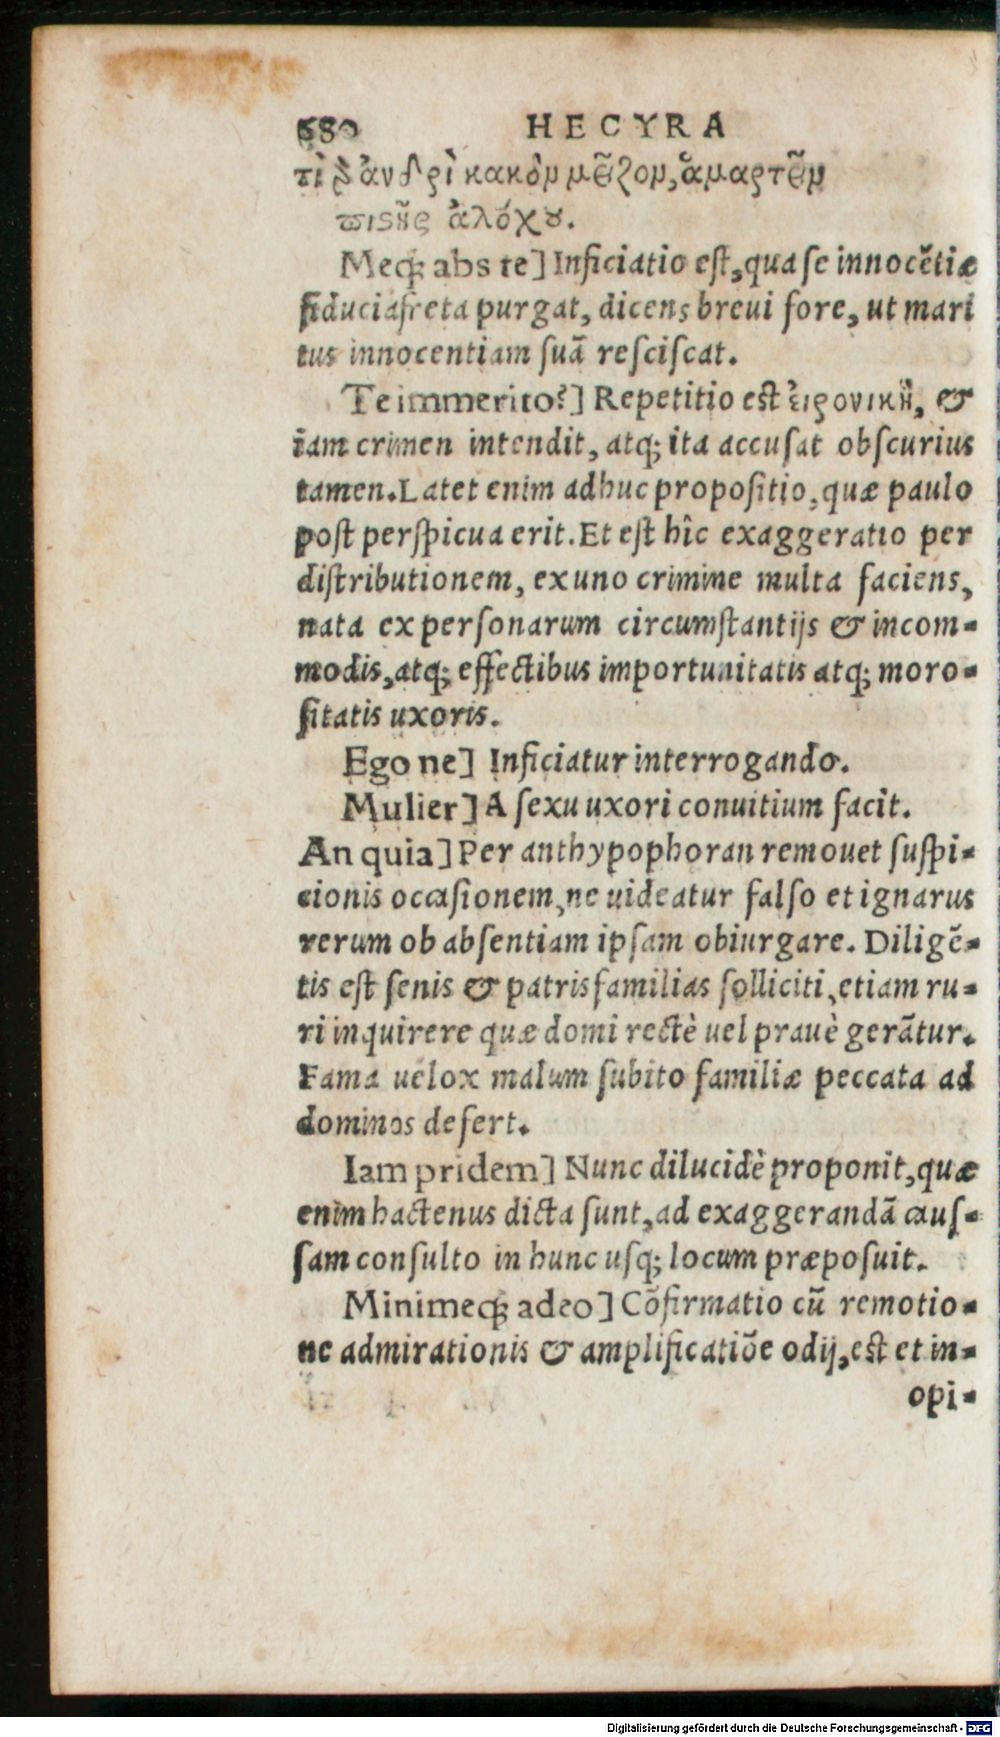 680 HECYRA
τὶ δ' ἀνδρὶ κακὸν μεῖζον, ἁμαρτεῖν
πιςῆς ἀλόχου.
Meq́; abs te] Inficiatio est, qua se innocẽtiæ
fiducia freta purgat, dicens breui fore, ut mari
tus innocentiam suã resciscat.
Te immerito?] Repetitio est εἰρονικὴ, &
iam crimen intendit, atq; ita accusat obscurius
tamen. Latet enim adhuc propositio, quæ paulo
post perspicua erit. Et est hîc exaggeratio per
distributionem, ex uno crimine multa faciens,
nata ex personarum circumstantijs & incom-
modis, atq; effectibus importunitatis atq; moro-
sitatis uxoris.
Ego ne] Inficiatur interrogando.
Mulier] A sexu uxori conuitium facit.
An quia] Per anthypophoran remouet suspi-
cionis occasionem, ne uideatur falso et ignarus
rerum ob absentiam ipsam obiurgare. Diligẽ-
tis est senis & patrisfamilias solliciti, etiam ru-
ri inquirere quæ domi rectè uel prauè gerãtur.
Fama uelox malum subito familiæ peccata ad
dominos defert.
Iam pridem] Nunc dilucidè proponit, quæ
enim hactenus dicta sunt, ad exaggerandã caus-
sam consulto in hunc usq; locum præposuit.
Minimeq́; adeo] Cõfirmatio cũ remotio-
ne admirationis & amplificatiõe odij, est et in-
opi-
Digitalisierung gefördert durch die Deutsche Forschungsgemeinschaft - DFG